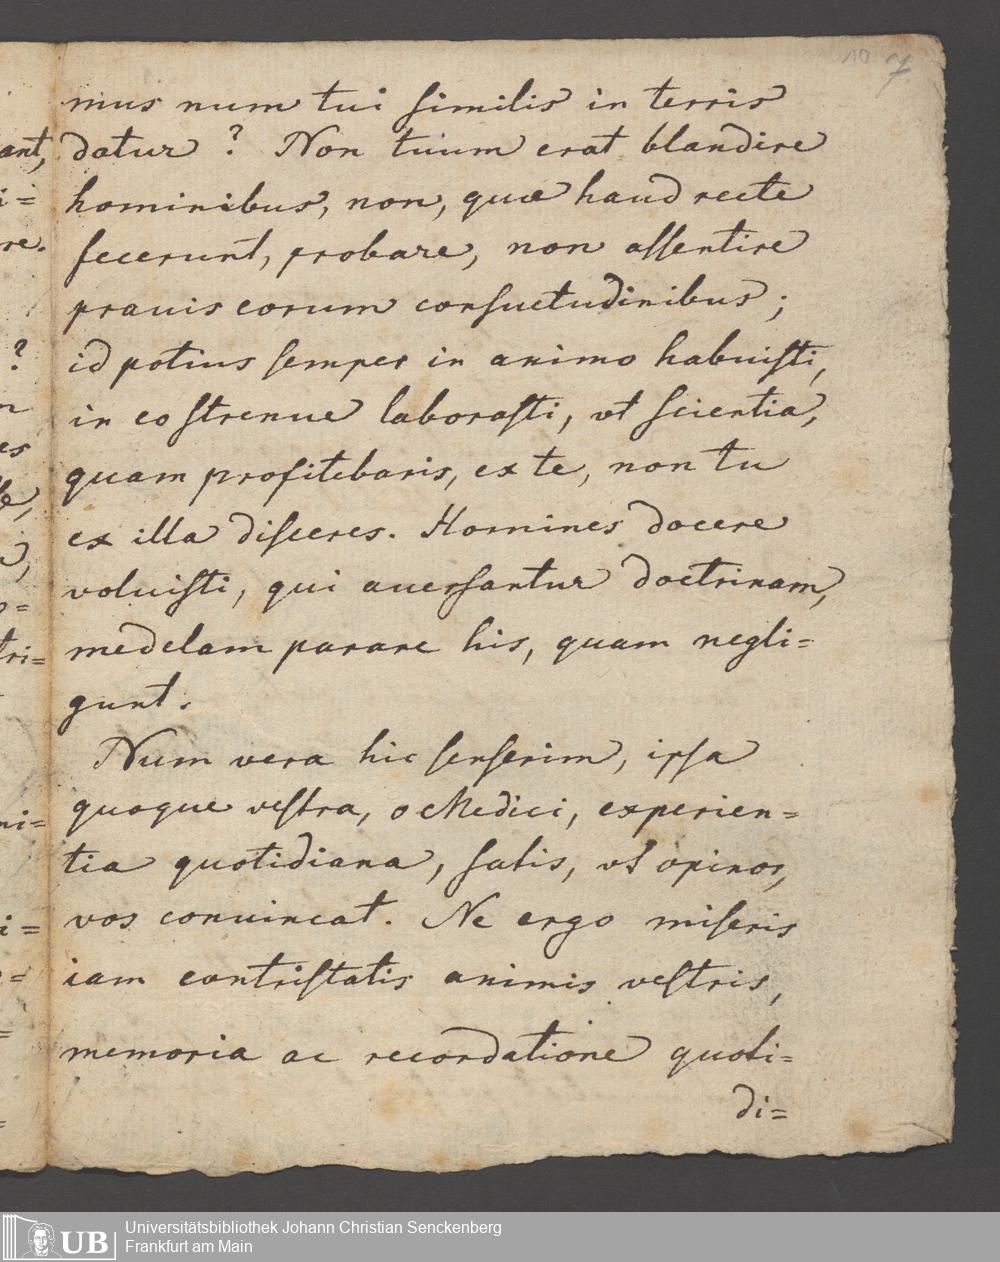 10 7
mus num tui similis in terris
datur? Non tuum erat blandire
hominibus, non, quæ haud recte
fecerunt, probare, non assentire
prauis eorum consuetudinibus;
id potius semper in animo habuisti,
in eo strenue laborasti, vt scientia,
quam profitebaris, ex te, non tu
ex illa disceres. Homines docere
voluisti, qui auersantur doctrinam,
medelam parare his, quam negli=
gunt.
Num vera hic senserim, ipsa
quoque vestra, o Medici, experien=
tia quotidiana, satis, vt opinor,
vos conuincat. Ne ergo miseris
iam contristatis animis vestris,
memoria ac recordatione quoti=
di=
UB
Universitätsbibliothek Johann Christian Senckenberg
Frankfurt am Main